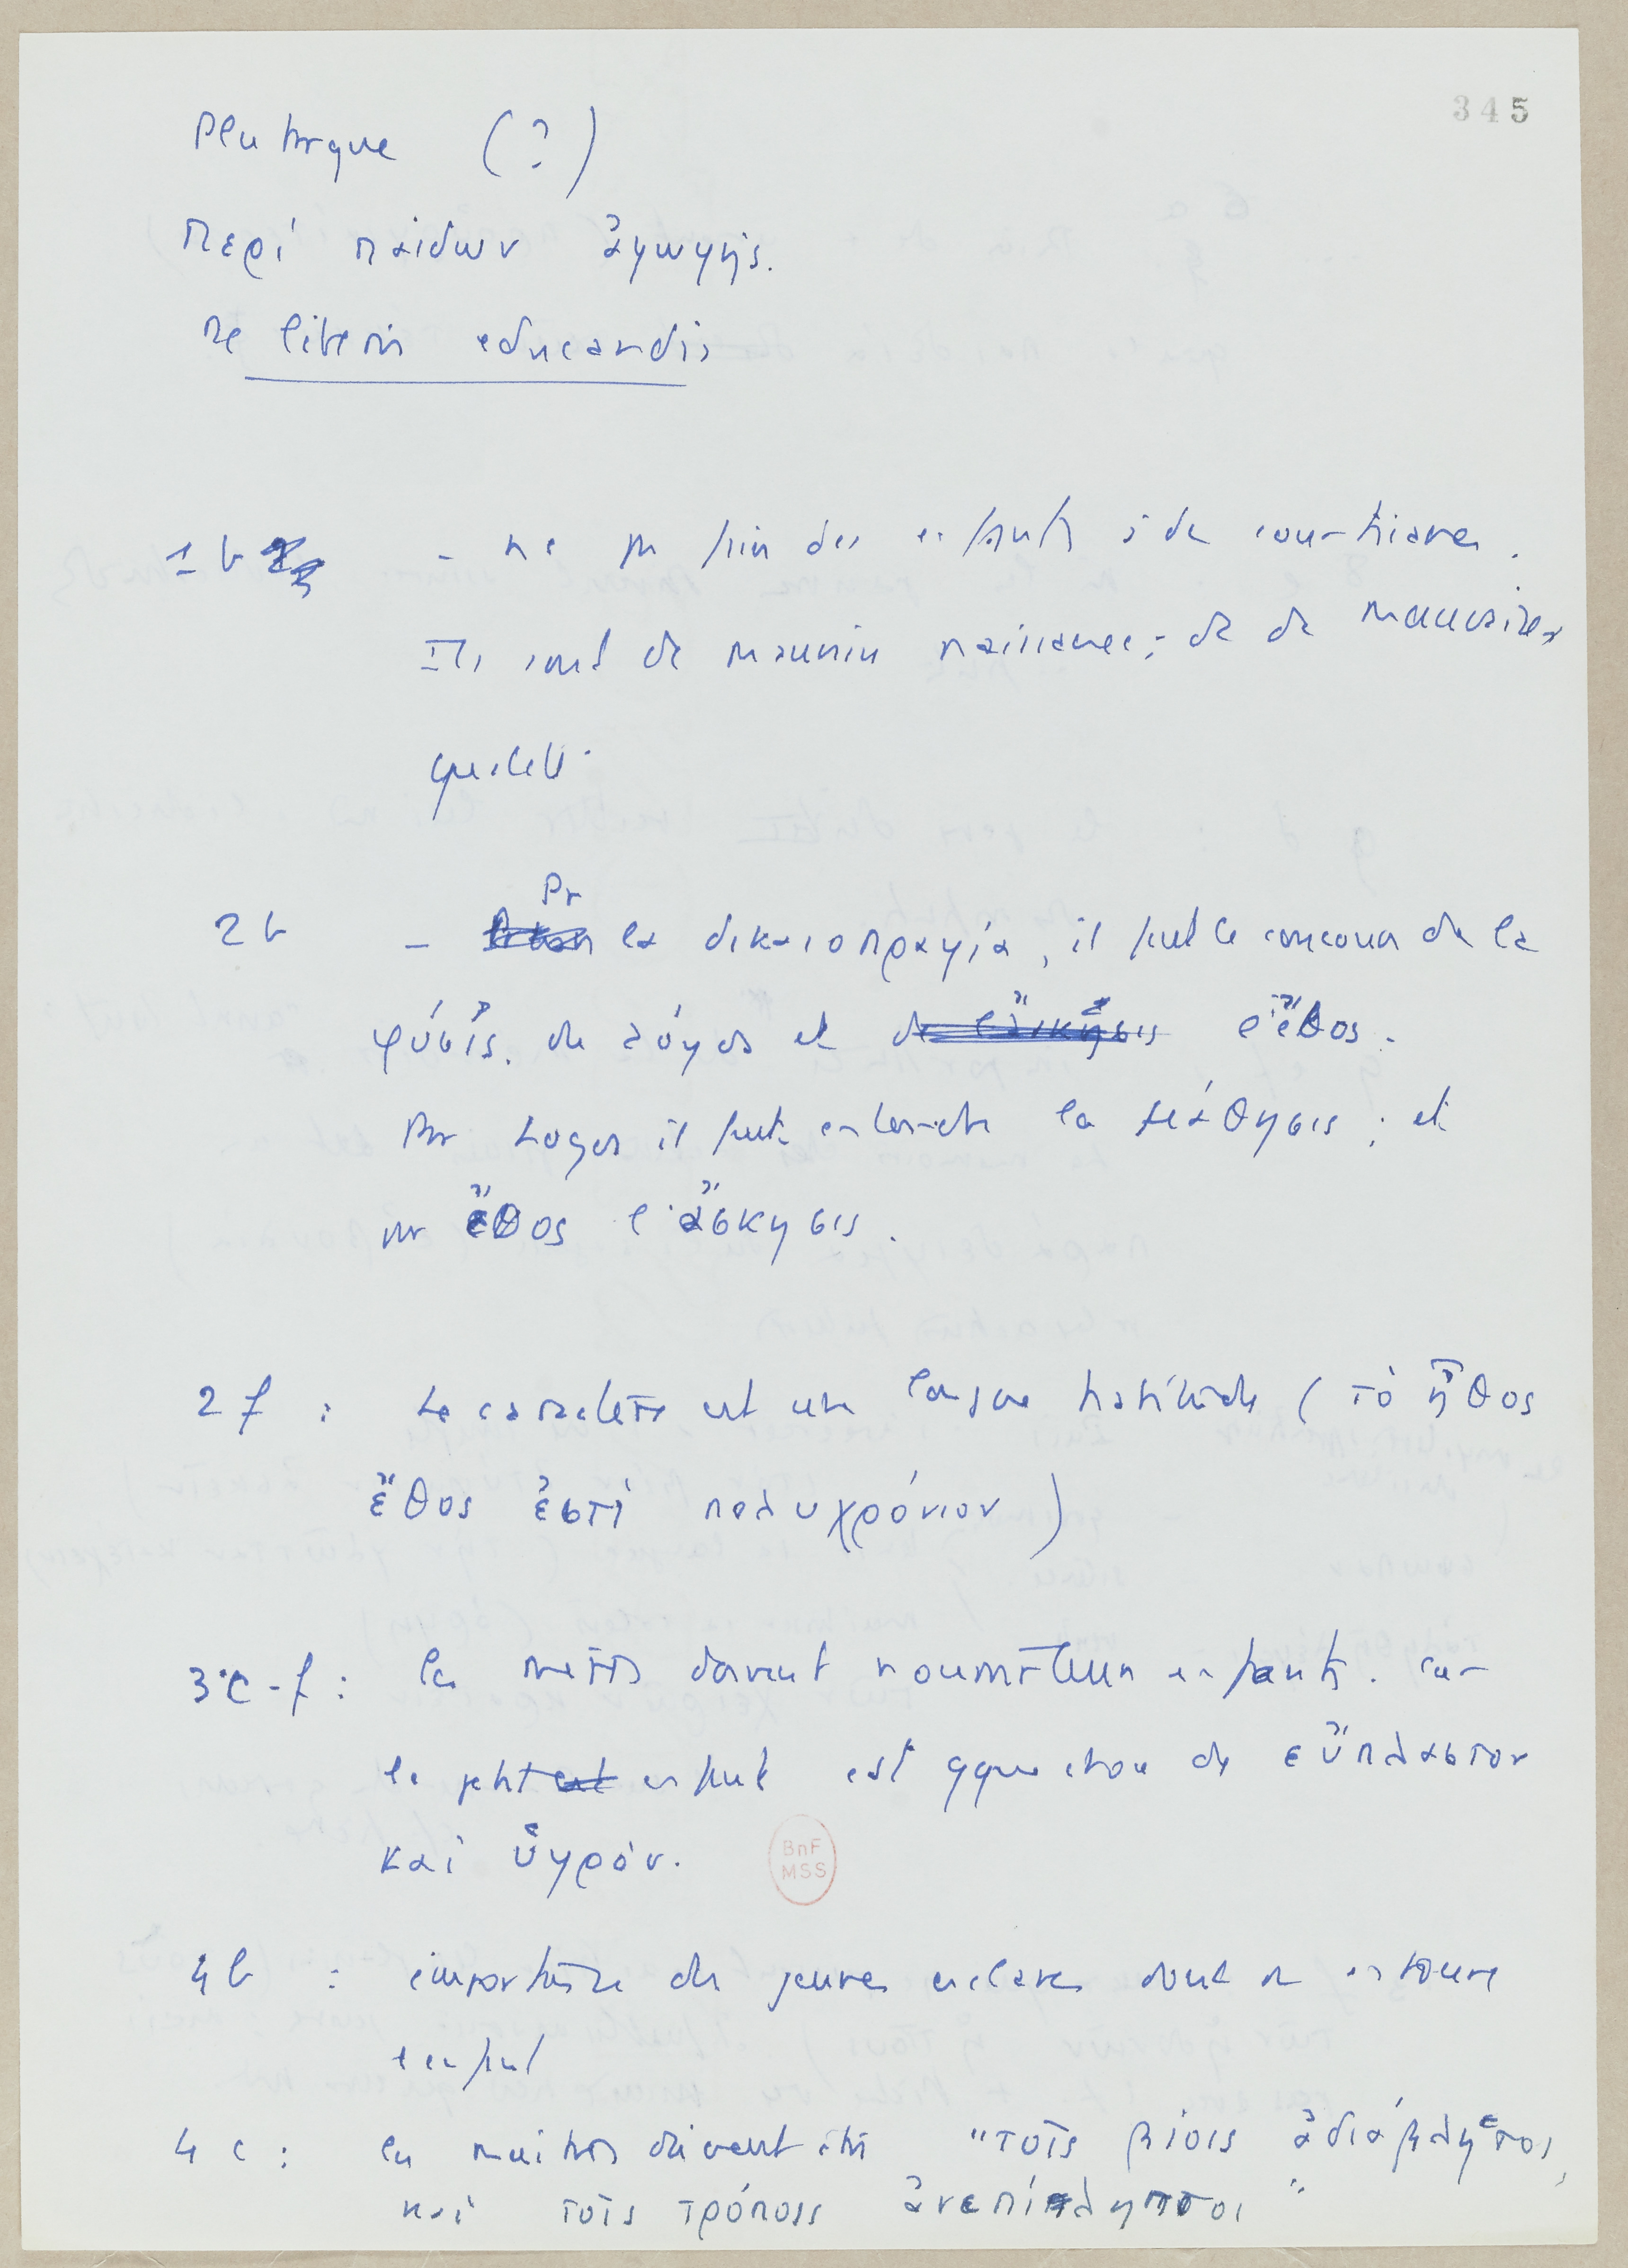 345
Plutarque (?)
Περί παίδων ἀγωγῆς.
De liberis educandis
1 b - ne pas faire des enfants à des courtisanes.
Ils sont de mauvaise naissance; et de mauvaises
qualités.
2 b - Pr la δικαιοπραγία, il faut le concours de la
φύσις. de λόγος et ἔθος.
Par Logos il faut entendre la μάθησις ; et
par ἔθος l'ἄσκησις.
2 f : Le caractère est une longue habitude (τὸ ἦθος
ἔθος ἐστὶ πολυχρόνιον)
3 c-f : les mères doivent nourrir leurs enfants. car
le petit enfant est qque chose de εὔπλαστον
καὶ ὑγρόν.
BnF
MSS
4 b : importance des jeunes esclaves dont on entoure
l'enfant
4 c : les maîtres doivent être "τοῖς βίοις ἀδιάβλητοι,
καὶ τοῖς τρόποις ἀνεπίληπτοι"